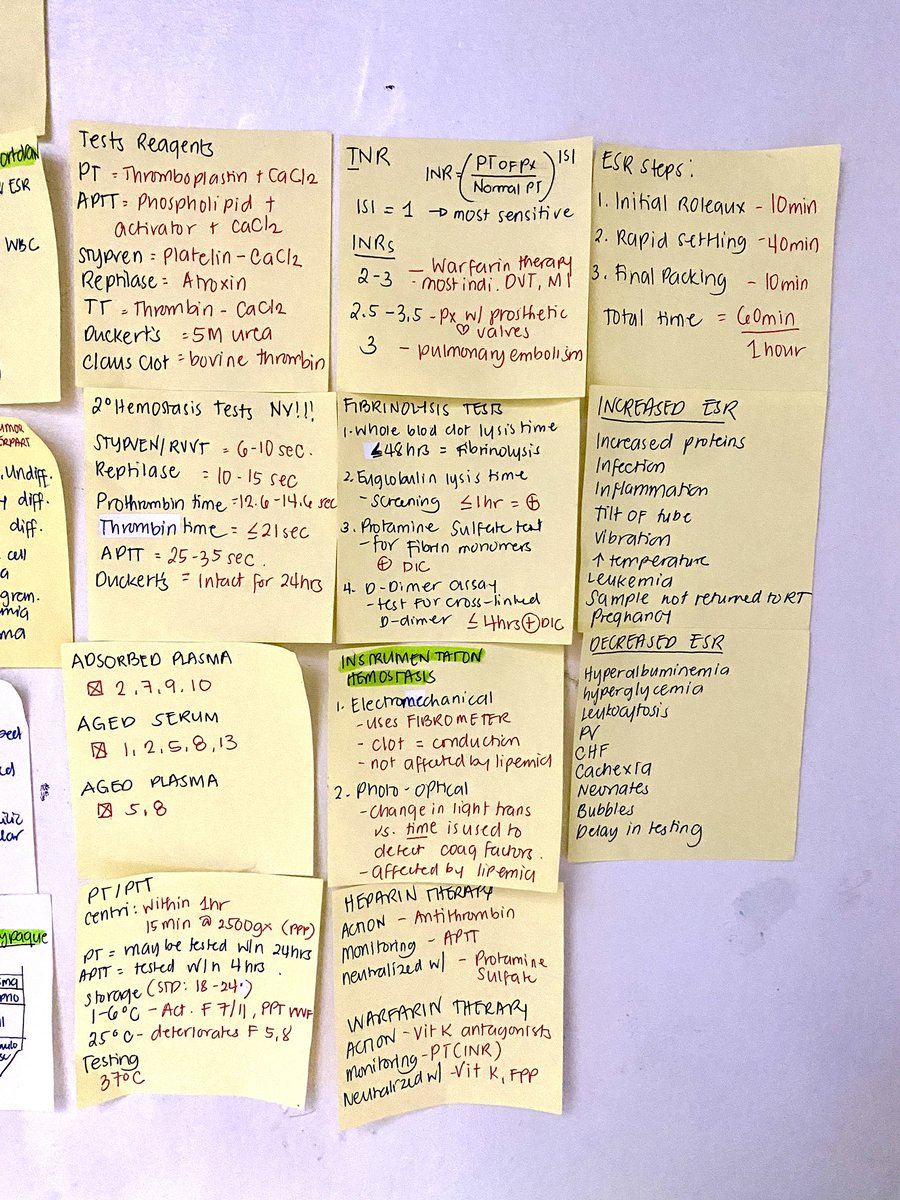 ortolan
ESR
WBC
Tests Reagents
PT = Thromboplastin + CaCl2
APTT = Phospholipid +
activator + CaCl2
Stypven = Platelin - CaCl2
Reptilase = Atroxin
TT = Thrombin - CaCl2
Duckert's = 5M urea
Claus Clot = bovine thrombin
INR
INR = (PT OF Px / Normal PT) ISI
ISI = 1 → most sensitive
INRs
2-3 - Warfarin therapy
- most indi. DVT, MI
2.5-3.5 - px w/ prosthetic
♡ valves
3 - pulmonary embolism
ESR Steps:
1. Initial Roleaux - 10min
2. Rapid Settling - 40min
3. Final Packing - 10min
Total time = 60min
1 hour
2° Hemostasis Tests NV!!!
STYPVEN/RVVT = 6-10 sec.
Reptilase = 10-15 sec
Prothrombin time = 12.6-14.6 sec
Thrombin time = ≤21sec
APTT = 25-35 sec.
Duckert's = Intact for 24hrs
FIBRINOLYSIS TESTS
1. Whole blod clot lysis time
≤48hrs = Fibrinolysis
2. Euglobulin lysis time
- screening ≤1hr = ⊕
3. Protamine Sulfate test
- for Fibrin monomers
⊕ DIC
4. D-Dimer assay
- test for cross-linked
D-dimer ≤4hrs ⊕ DIC
INCREASED ESR
Increased proteins
Infection
Inflammation
Tilt of tube
Vibration
↑ temperature
Leukemia
Sample not returned to RT
Pregnancy
DECREASED ESR
Hyperalbuminemia
hyperglycemia
Leukocytosis
PV
CHF
Cachexia
Neonates
Bubbles
Delay in testing
ADSORBED PLASMA
☒ 2,7,9,10
AGED SERUM
☒ 1,2,5,8,13
AGED PLASMA
☒ 5,8
INSTRUMENTATON
HEMOSTASIS
1. Electromechanical
- uses FIBROMETER
- clot = conduction
- not affected by lipemia
2. Photo-optical
- change in light trans
vs. time is used to
detect coag factors.
- affected by lipemia
PT/PTT
Centri: within 1hr
15min @ 2500gx (PPP)
PT = may be tested w/n 24hrs
APTT = tested w/n 4hrs.
Storage (STD: 18-24°)
1-6°C - Act. F 7/11, PPT VWF
25°C - deteriorates F 5,8
Testing
37°C
HEPARIN THERAPY
ACTION - Antithrombin
monitoring - APTT
neutralized w/ - Protamine
Sulfate
WARFARIN THERAPY
ACTION - Vit K antagonists
monitoring - PT(INR)
Neutralized w/ - Vit K, FPP
undiff.
diff.
diff.
cell